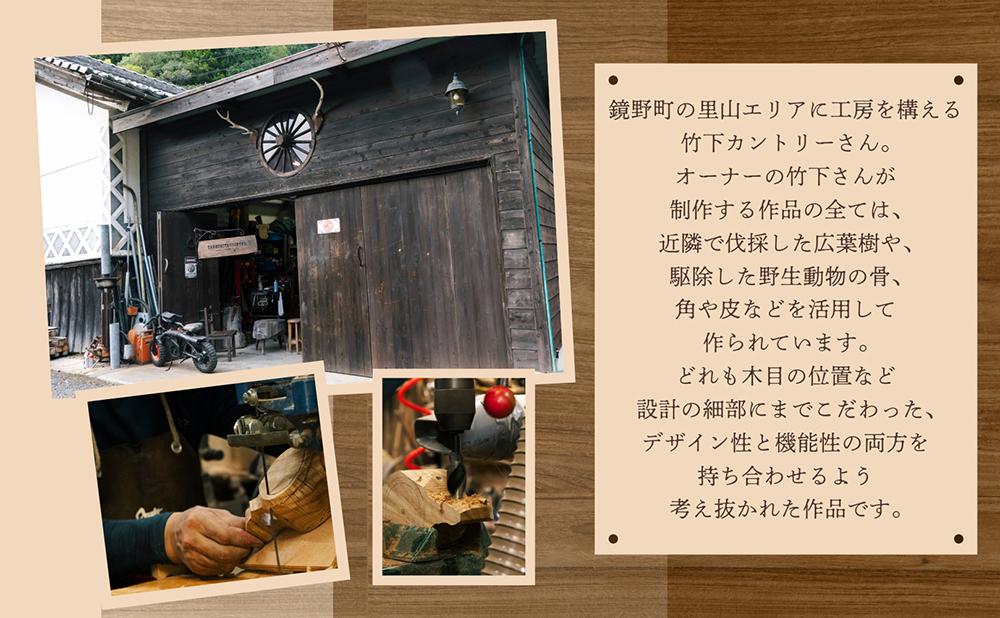 鏡野町の里山エリアに工房を構える
竹下カントリーさん。
オーナーの竹下さんが
制作する作品の全ては、
近隣で伐採した広葉樹や、
駆除した野生動物の骨、
角や皮などを活用して
作られています。
どれも木目の位置など
設計の細部にまでこだわった、
デザイン性と機能性の両方を
持ち合わせるよう
考え抜かれた作品です。